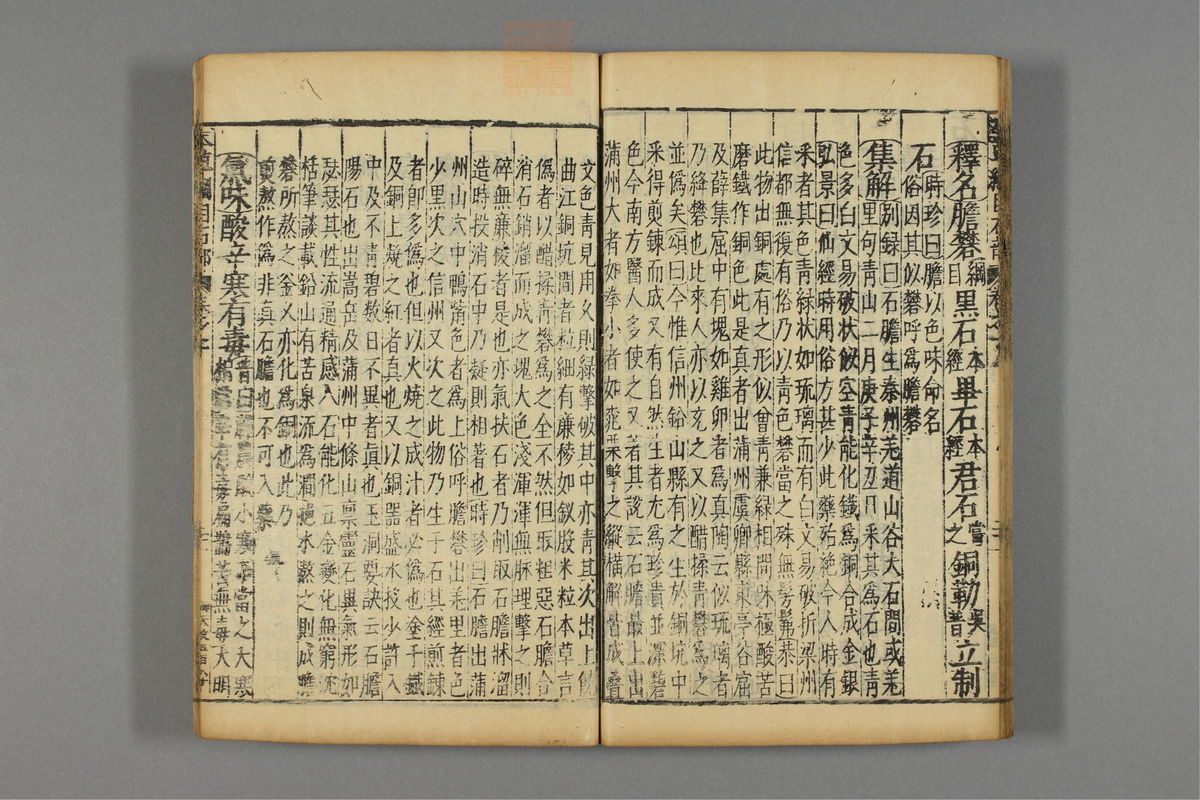 釋名膽礬綱目黑石本經畢石本經君石當之銅勒吳普立制
石時珍曰膽以色味命名
俗因其似礬呼爲膽礬
集解別録曰石膽生秦州羌道山谷大石間或羌
里句青山二月庚子辛丑日采其爲石也青
色多白文易破狀似空青能化鐵爲銅合成金銀
弘景曰仙經時用俗方甚少此藥殆絶今人時有
采者其色青緑狀如琉璃而有白文易破折梁州
信都無復有俗乃以青色礬當之殊無髣髴恭曰
此物出銅處有之形似曾青兼緑相間味極酸苦
磨鐵作銅色此是真者出蒲州虞鄉縣東亭谷窟
及薛集窟中有塊如雞卵者爲真陶云似琉璃者
乃絳礬也比來人亦以充之又以醋揉青礬爲之
並僞矣頌曰今惟信州鉛山縣有之生於銅坑中
采得煎鍊而成又有自然生者尤爲珍貴並深碧
色今南方醫人多使之又著其說云石膽最上出
蒲州大者如拳小者如桃栗擊之縱橫解皆成疊
文色青見風久則緑擊破其中亦青其次出上饒
曲江銅坑間者粒細有廉稜如釵股米粒本草言
僞者以醋揉青礬爲之全不然但取粗惡石膽合
消石銷溜而成之塊大色淺渾渾無脈理擊之則
碎無廉稜者是也亦氣扶石者乃削取石膽牀溜
造時投消石中及凝則相著也時珍曰石膽出蒲
州山穴中鴨觜色者爲上俗呼膽礬出羌里者色
少黑次之信州又次之此物乃生于石其經煎鍊
者即多僞也但以火燒之成汁者必僞也塗于鐵
及銅上燒之紅者真也又以銅器盛水投少許入
中及不青碧數日不異者真也玉洞要訣云石膽
陽石也出嵩岳及蒲州中條山稟靈石異氣形如
瑟瑟其性流通精感入石能化五金變化無窮沈
括筆談載鉛山有苦泉流爲澗挹水熬之則成膽
礬所熬之釜久亦化爲銅也此乃
煎熬作爲非真石膽也不可入藥
氣味酸辛寒有毒普曰小寒當之大寒
無毒大明